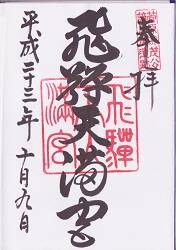 奉拝
飛騨天満宮
飛騨
天満宮
平成二十三年十月九日